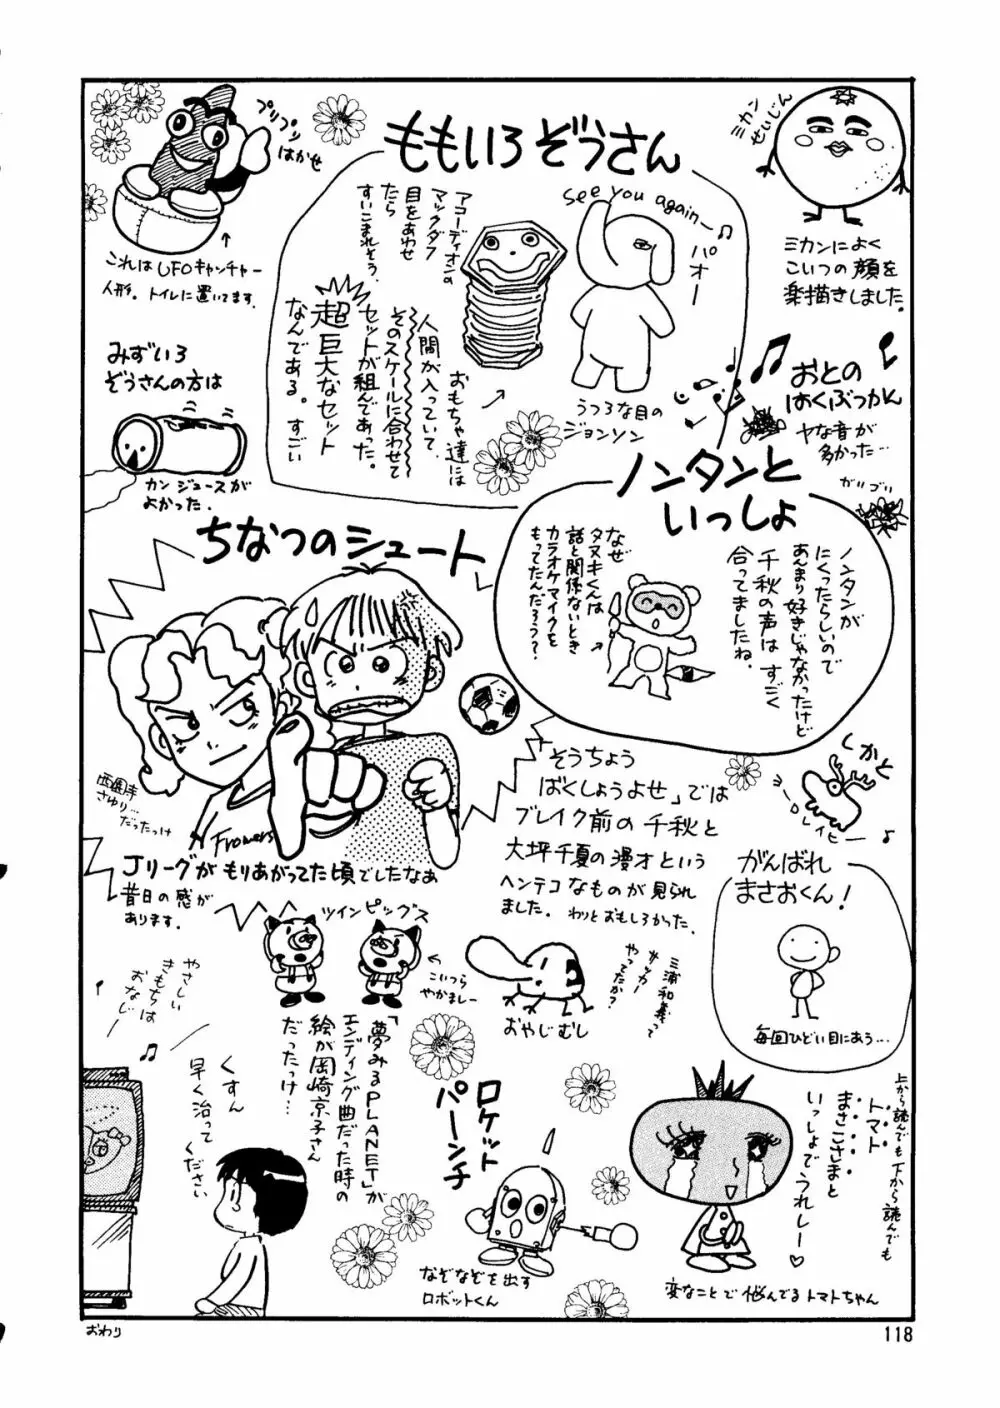 ももいろぞうさん
プリプリ
はかせ
これはUFOキャンチャー
人形。トイレに置いてます。
see you again―♪
パオー
アコーディオンの
マックダフ
目をあわせ
たら
すいこまれそう。
おもちゃ達には
人間が入っていて
そのスケールに合わせて
セットが組んであった。
超巨大なセット
なんである。すごい
うつろな目の
ジョンソン
ミカン
せいじん
ミカンによく
こいつの顔を
楽描きしました。
みずいろ
ぞうさんの方は
カンジュースが
よかった.
おとの
はくぶつかん
ヤな音が
多かった…
ガリゴリ
ノンタンと
いっしょ
ノンタンが
にくったらしいので
あんまり好きじゃなかったけど
千秋の声はすごく
合ってましたね。
なぜ
タヌキくんは
話と関係ないとき
カラオケマイクを
もってたんだろう?
ちなつのシュート
西園寺
さゆり…
だったっけ
Flowers
Jリーグがもりあがってた頃でしたなあ
昔日の感が
あります。
「そうちょう
ばくしょうよせ」では
ブレイク前の千秋と
大坪千夏の漫才という
ヘンテコなものが見られ
ました。わりとおもしろかった.
くかと
レイヒー♪
がんばれ
まさおくん!
毎回ひどい目にあう…
ツインピッグス
←
こいつら
やかましー
おやじむし
三浦和義って
サッカー
やってたか?
やさしい
きもちは
おなじ―
♪
くすん
早く治って
ください
「夢みるPLANET」が
エンディング曲だった時の
絵が岡崎京子さん
だったっけ…
ロケット
パーンチ
なぞなぞを出す
ロボットくん
上から読んでも下から読んでも
トマト
まさこさまと
いっしょでうれしー♡
変なことで悩んでるトマトちゃん
おわり
118